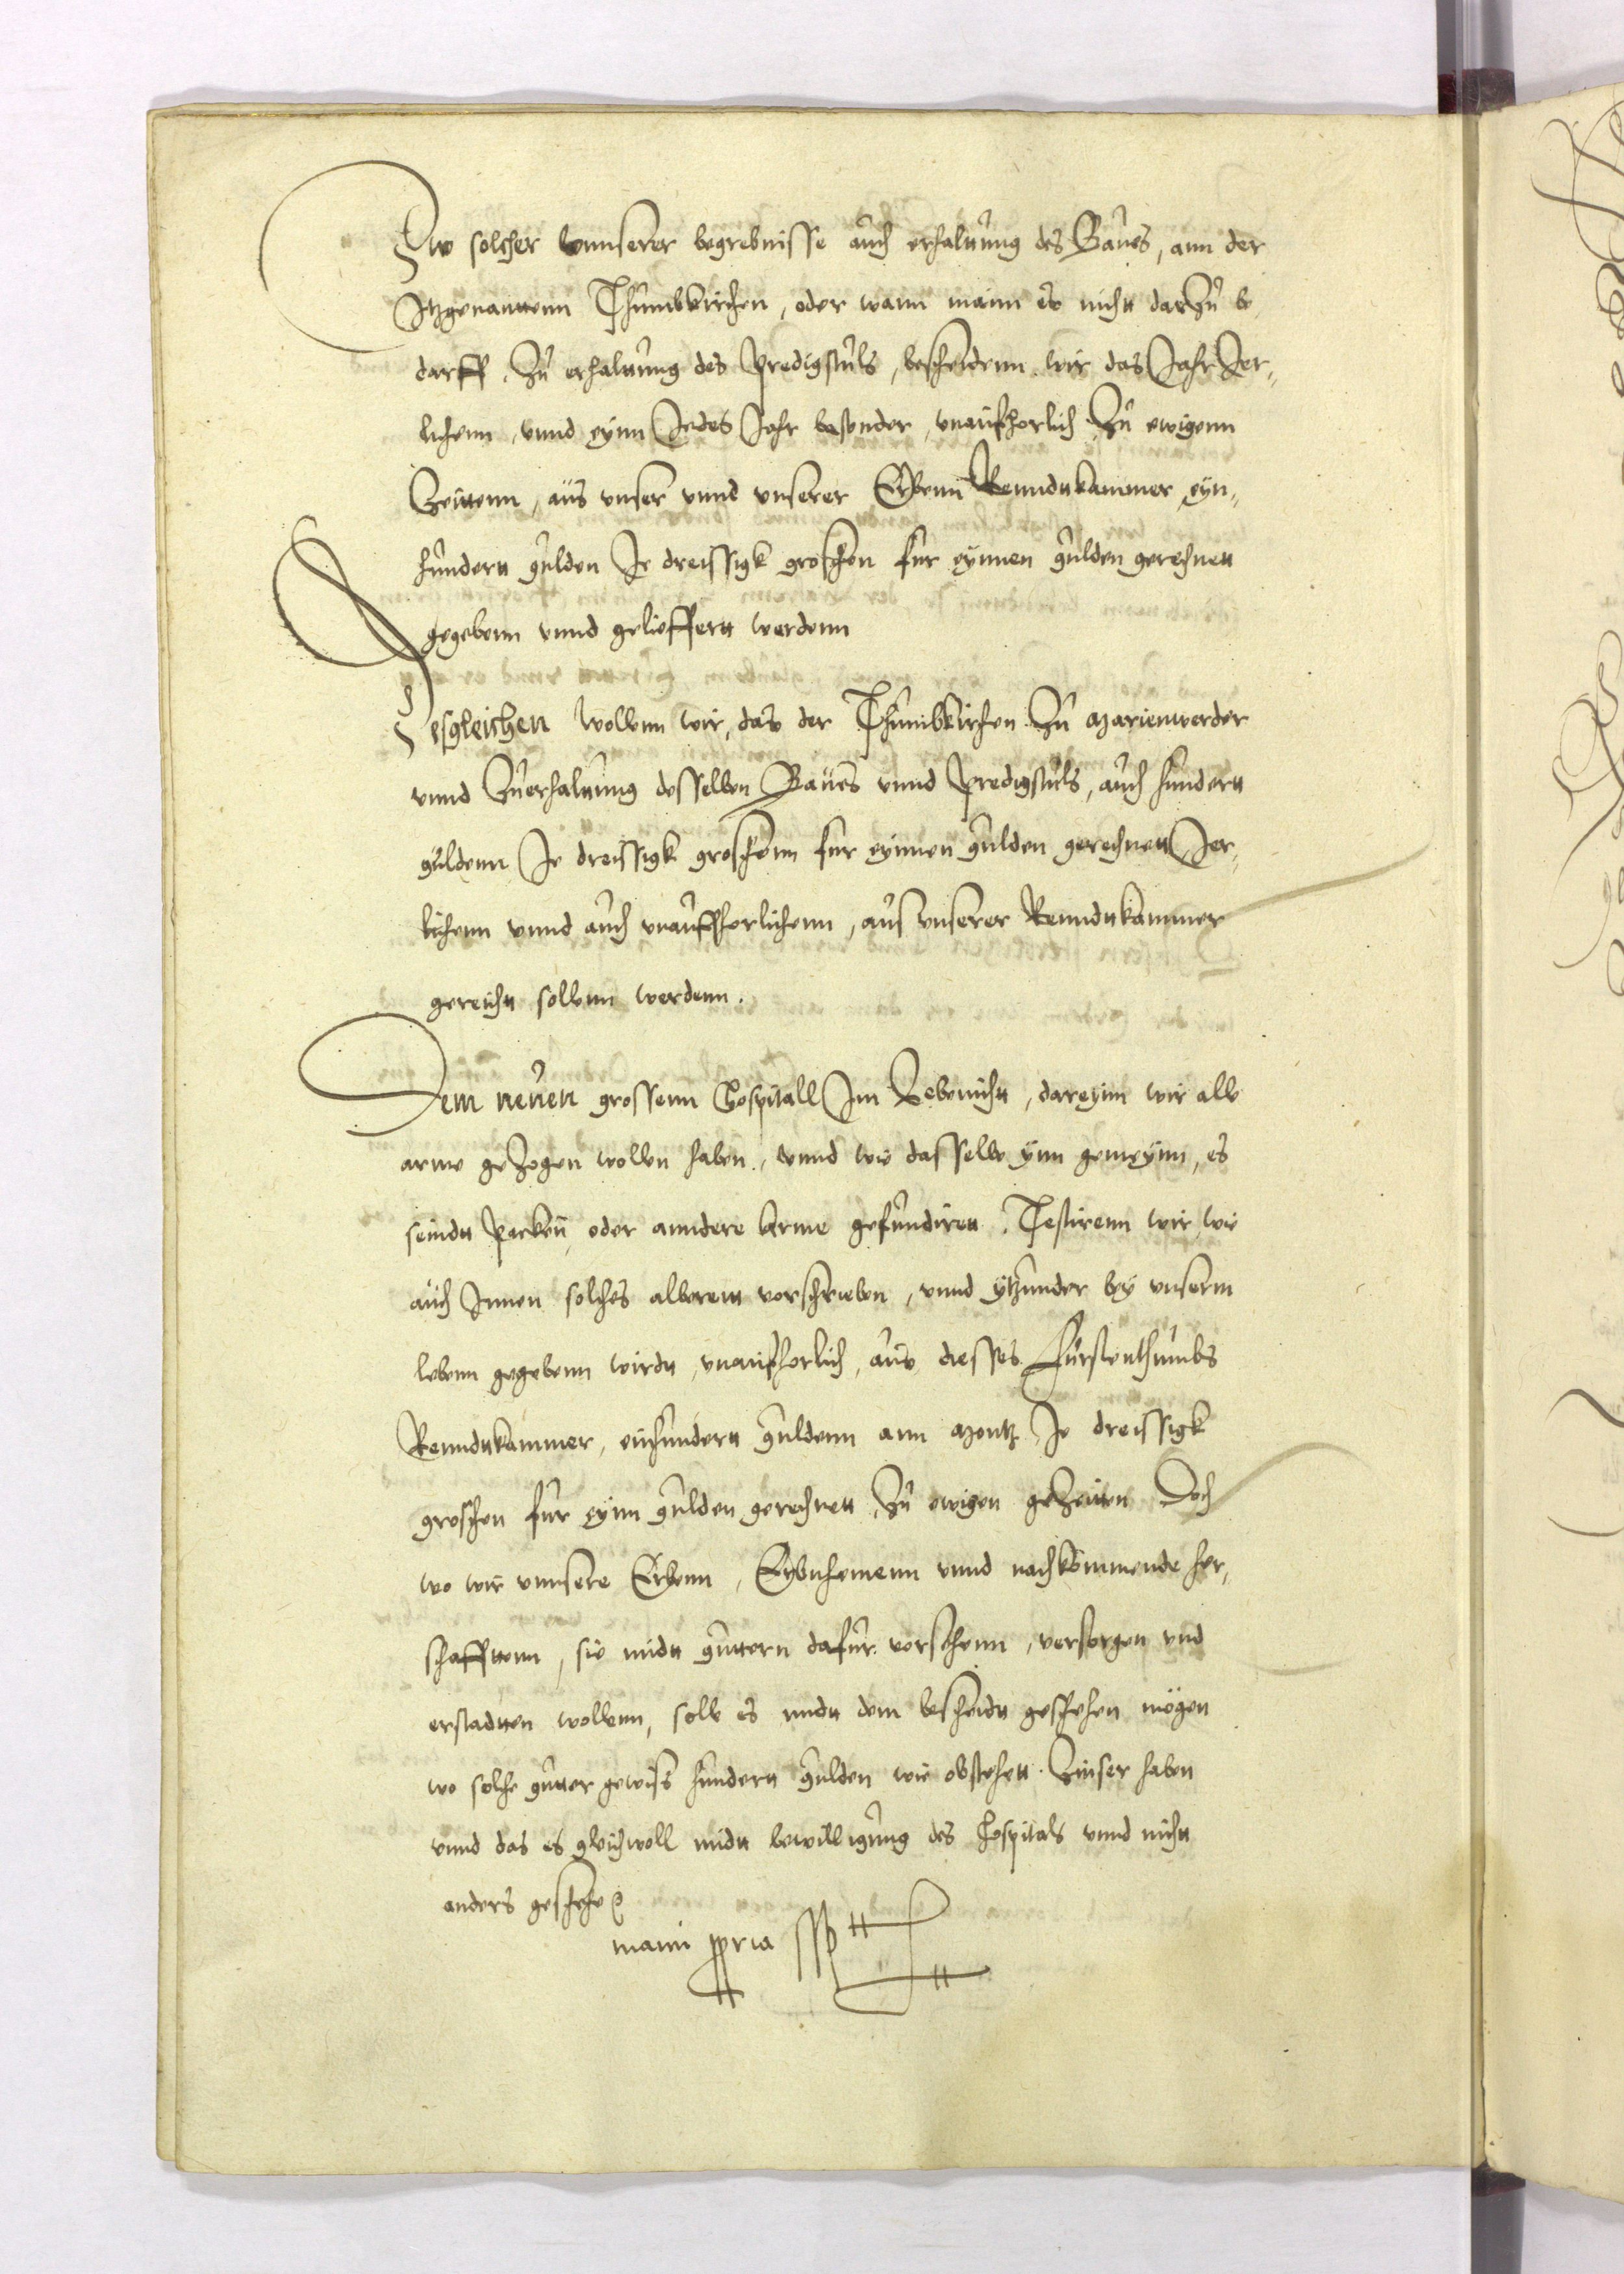 Zw solcher vnnserer begrebnisse auch erhaltung des Baues, ann der
Itzgenanttenn Thumbkirchen, oder wann mann es nicht darzu be
darff. Zu erhaltung des Predigstuls, bescheidenn wir das Jahr Jer,
lichenn, vnnd eynn Jedes Jahr besonder, vnaufhorlich Zu ewigenn
Zeittenn, aus vnser vnnd vnserer Erbenn Renndtkammer, eyn,
hundertt gulden Je dreissigk groschen fur eynnen gulden gerechnett
gegebenn vnnd gelieffertt werdenn
Desgleichen wollenn wir, das der Thumbkirchen Zu Marienwerder
vnnd Zuerhaltung desselben Baues vnnd Predigstuls, auch hundertt
guldenn Je dreissigk groschenn fur eynnen gulden gerechnett Jer,
lichenn vnnd auch vnauffhorlichenn, aus vnserer Renndtkammer
gereicht sollenn werdenn.
Dem neuen grossenn Hospitall Im Lebenicht, dareynn wir alle
arme gezogen wollen haben, vnnd wie dasselbe ynn gemeynn, es
seindtt Pocken, oder anndere Arme gefundirett. Testirenn wir, wie
auch Innen solches alberett vorschrieben, vnnd ytzunder bey vnserm
lebenn gegebenn wirdtt, vnaufhorlich, aus dieses Furstenthumbs
Renndtkammer, einhundertt guldenn ann Montz Je dreissigk
groschen fur eynn gulden gerechnett, Zu ewigen geZeitten Doch
wo wir vnnsere Erbenn, Erbnhemenn vnnd nachkommende her,
schafftenn, sie midtt guttern dafur vorsehenn, versorgen vnd
erstadten wollenn, solle es midtt dem bescheidtt geschehen mögen
wo solche gutter gewiss hundertt gulden wie obstehett Zinser haben
vnnd das es gleichwoll midtt bewilligung des Hospitals vnnd nicht
anders geschehe
manu ppria sspt